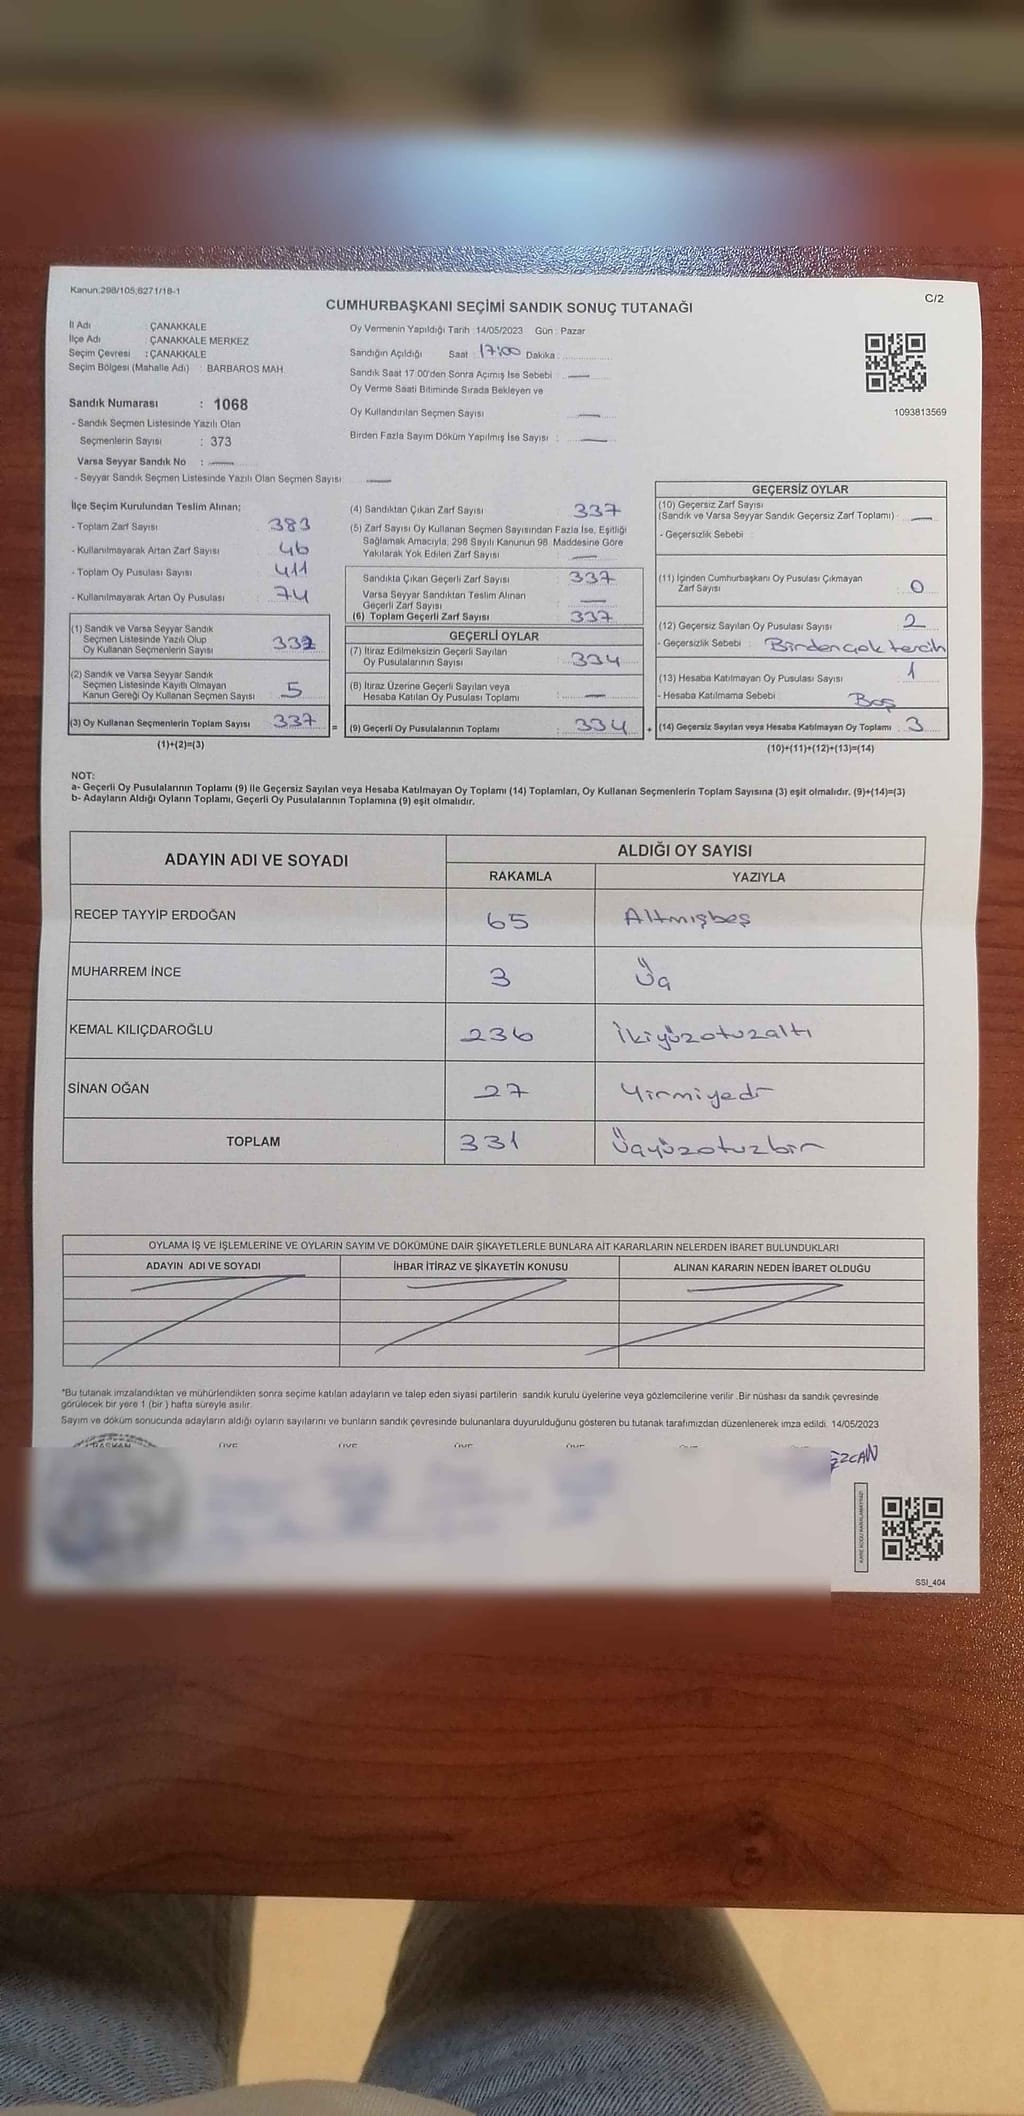 Kanun:298/105,6271/18-1
C/2
CUMHURBAŞKANI SEÇİMİ SANDIK SONUÇ TUTANAĞI
İl Adı : ÇANAKKALE
İlçe Adı : ÇANAKKALE MERKEZ
Seçim Çevresi : ÇANAKKALE
Seçim Bölgesi (Mahalle Adı) : BARBAROS MAH.
Oy Vermenin Yapıldığı Tarih : 14/05/2023 Gün : Pazar
Sandığın Açıldığı Saat : 17:00 Dakika :
Sandık Saat 17.00'den Sonra Açımış İse Sebebi : —
Oy Verme Saati Bitiminde Sırada Bekleyen ve
Oy Kullandırılan Seçmen Sayısı —
Birden Fazla Sayım Döküm Yapılmış İse Sayısı : —
1093813569
Sandık Numarası : 1068
- Sandık Seçmen Listesinde Yazılı Olan
Seçmenlerin Sayısı : 373
Varsa Seyyar Sandık No : —
- Seyyar Sandık Seçmen Listesinde Yazılı Olan Seçmen Sayısı —
İlçe Seçim Kurulundan Teslim Alınan;
- Toplam Zarf Sayısı 383
- Kullanılmayarak Artan Zarf Sayısı 46
- Toplam Oy Pusulası Sayısı 411
- Kullanılmayarak Artan Oy Pusulası 74
(1) Sandık ve Varsa Seyyar Sandık
Seçmen Listesinde Yazılı Olup
Oy Kullanan Seçmenlerin Sayısı 332
(2) Sandık ve Varsa Seyyar Sandık
Seçmen Listesinde Kayıtlı Olmayan
Kanun Gereği Oy Kullanan Seçmen Sayısı 5
(3) Oy Kullanan Seçmenlerin Toplam Sayısı 337 =
(1)+(2)=(3)
(4) Sandıktan Çıkan Zarf Sayısı 337
(5) Zarf Sayısı Oy Kullanan Seçmen Sayısından Fazla İse, Eşitliği
Sağlamak Amacıyla; 298 Sayılı Kanunun 98. Maddesine Göre
Yakılarak Yok Edilen Zarf Sayısı —
Sandıkta Çıkan Geçerli Zarf Sayısı : 337
Varsa Seyyar Sandıktan Teslim Alınan
Geçerli Zarf Sayısı : —
(6) Toplam Geçerli Zarf Sayısı : 337
GEÇERLİ OYLAR
(7) İtiraz Edilmeksizin Geçerli Sayılan
Oy Pusulalarının Sayısı : 334
(8) İtiraz Üzerine Geçerli Sayılan veya
Hesaba Katılan Oy Pusulası Toplamı : —
(9) Geçerli Oy Pusulalarının Toplamı : 334 +
GEÇERSİZ OYLAR
(10) Geçersiz Zarf Sayısı
(Sandık ve Varsa Seyyar Sandık Geçersiz Zarf Toplamı) : —
- Geçersizlik Sebebi :
(11) İçinden Cumhurbaşkanı Oy Pusulası Çıkmayan
Zarf Sayısı : 0
(12) Geçersiz Sayılan Oy Pusulası Sayısı : 2
- Geçersizlik Sebebi : Birden çok tercih
(13) Hesaba Katılmayan Oy Pusulası Sayısı : 1
- Hesaba Katılmama Sebebi : Boş
(14) Geçersiz Sayılan veya Hesaba Katılmayan Oy Toplamı : 3
(10)+(11)+(12)+(13)=(14)
NOT:
a- Geçerli Oy Pusulalarının Toplamı (9) ile Geçersiz Sayılan veya Hesaba Katılmayan Oy Toplamı (14) Toplamları, Oy Kullanan Seçmenlerin Toplam Sayısına (3) eşit olmalıdır. (9)+(14)=(3)
b- Adayların Aldığı Oyların Toplamı, Geçerli Oy Pusulalarının Toplamına (9) eşit olmalıdır.
ADAYIN ADI VE SOYADI ALDIĞI OY SAYISI
RAKAMLA YAZIYLA
RECEP TAYYİP ERDOĞAN 65 Altmışbeş
MUHARREM İNCE 3 Üç
KEMAL KILIÇDAROĞLU 236 İkiyüzotuzaltı
SİNAN OĞAN 27 Yirmiyedi
TOPLAM 331 Üçyüzotuzbir
OYLAMA İŞ VE İŞLEMLERİNE VE OYLARIN SAYIM VE DÖKÜMÜNE DAİR ŞİKAYETLERLE BUNLARA AİT KARARLARIN NELERDEN İBARET BULUNDUKLARI
ADAYIN ADI VE SOYADI İHBAR İTİRAZ VE ŞİKAYETİN KONUSU ALINAN KARARIN NEDEN İBARET OLDUĞU
*Bu tutanak imzalandıktan ve mühürlendikten sonra seçime katılan adayların ve talep eden siyasi partilerin sandık kurulu üyelerine veya gözlemcilerine verilir .Bir nüshası da sandık çevresinde
görülecek bir yere 1 (bir ) hafta süreyle asılır.
Sayım ve döküm sonucunda adayların aldığı oyların sayılarını ve bunların sandık çevresinde bulunanlara duyurulduğunu gösteren bu tutanak tarafımızdan düzenlenerek imza edildi. 14/05/2023
SSI_404